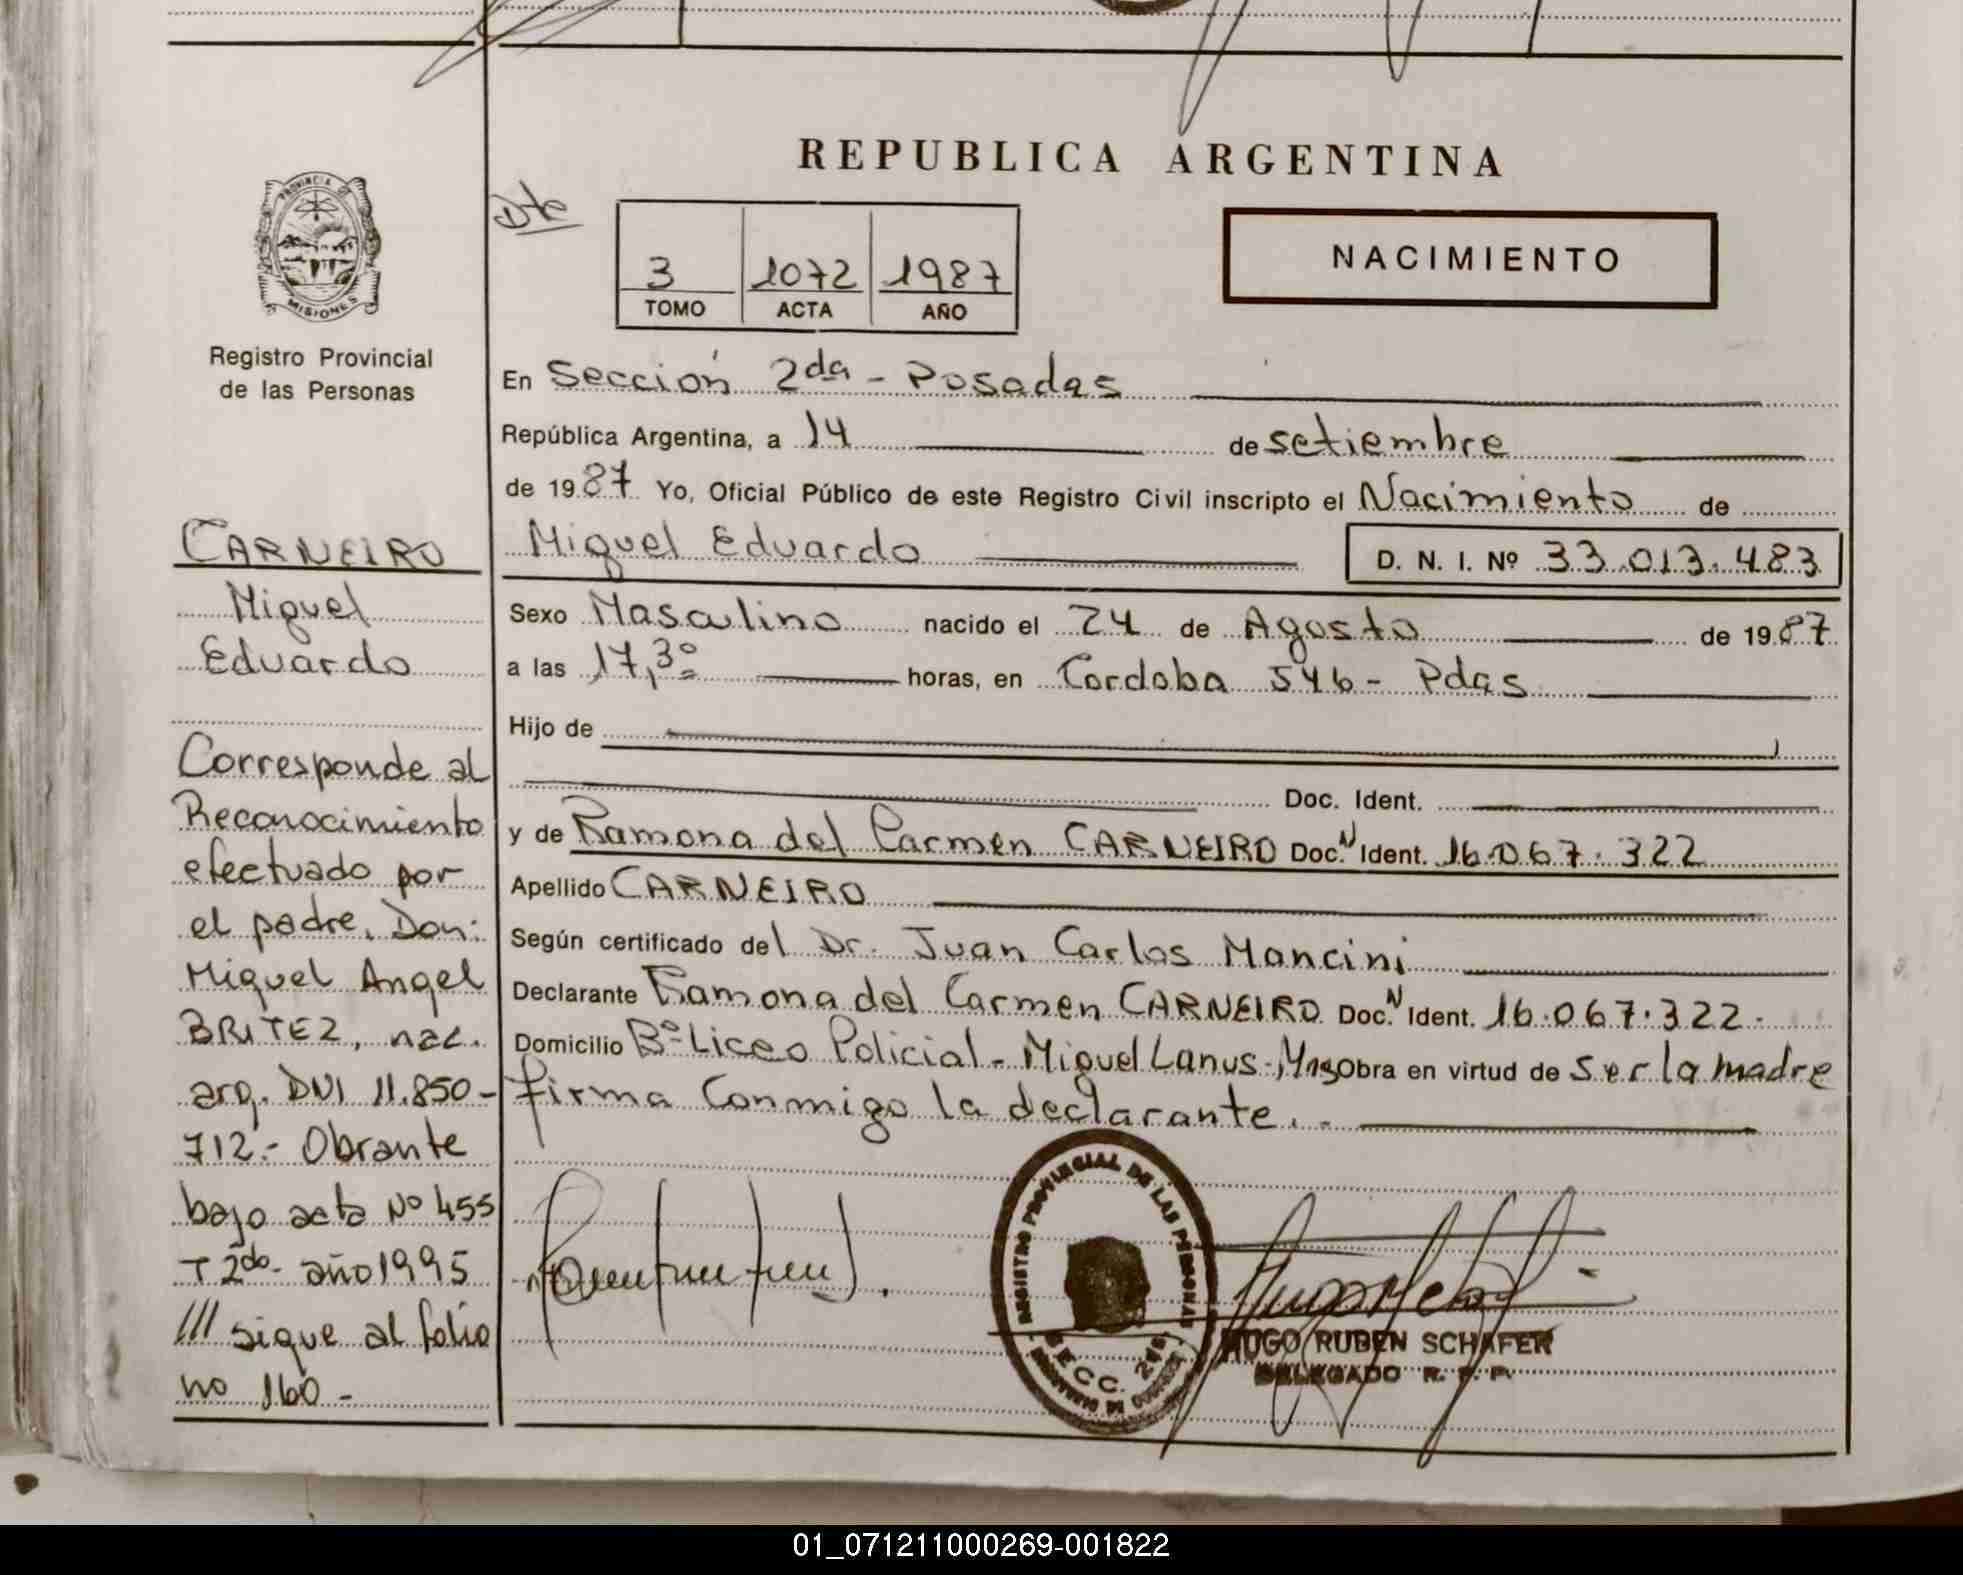 REPUBLICA ARGENTINA
PROVINCIA DE
MISIONES
Registro Provincial
de las Personas
Dte
3 1072 1987
TOMO ACTA AÑO
NACIMIENTO
En Sección 2da - Posadas
República Argentina, a 14 de setiembre
de 1987 Yo, Oficial Público de este Registro Civil inscripto el Nacimiento de
Miguel Eduardo D. N. I. Nº 33.013.483
Sexo Masculino nacido el 24 de Agosto de 1987
a las 17,30 horas, en Cordoba 546 - Pdas
Hijo de
Doc. Ident.
y de Ramona del Carmen CARNEIRO Doc. N Ident. 16.067.322
Apellido CARNEIRO
Según certificado del Dr. Juan Carlos Mancini
Declarante Ramona del Carmen CARNEIRO Doc. N Ident. 16.067.322.
Domicilio Bº Liceo Policial - Miguel Lanus - obra en virtud de ser la madre
firma conmigo la declarante.
CARNEIRO
Miguel
Eduardo
Corresponde al
Reconocimiento
efectuado por
el padre, Don:
Miguel Angel
BRITEZ, nac.
arg. DNI 11.850-
712.- Obrante
bajo acta Nº 455
T 2do- año 1995
/// sigue al folio
no 160 -
REGISTRO PROVINCIAL DE LAS PERSONAS
SECC. 2da
HUGO RUBEN SCHAFER
DELEGADO R. P. P.
01_071211000269-001822